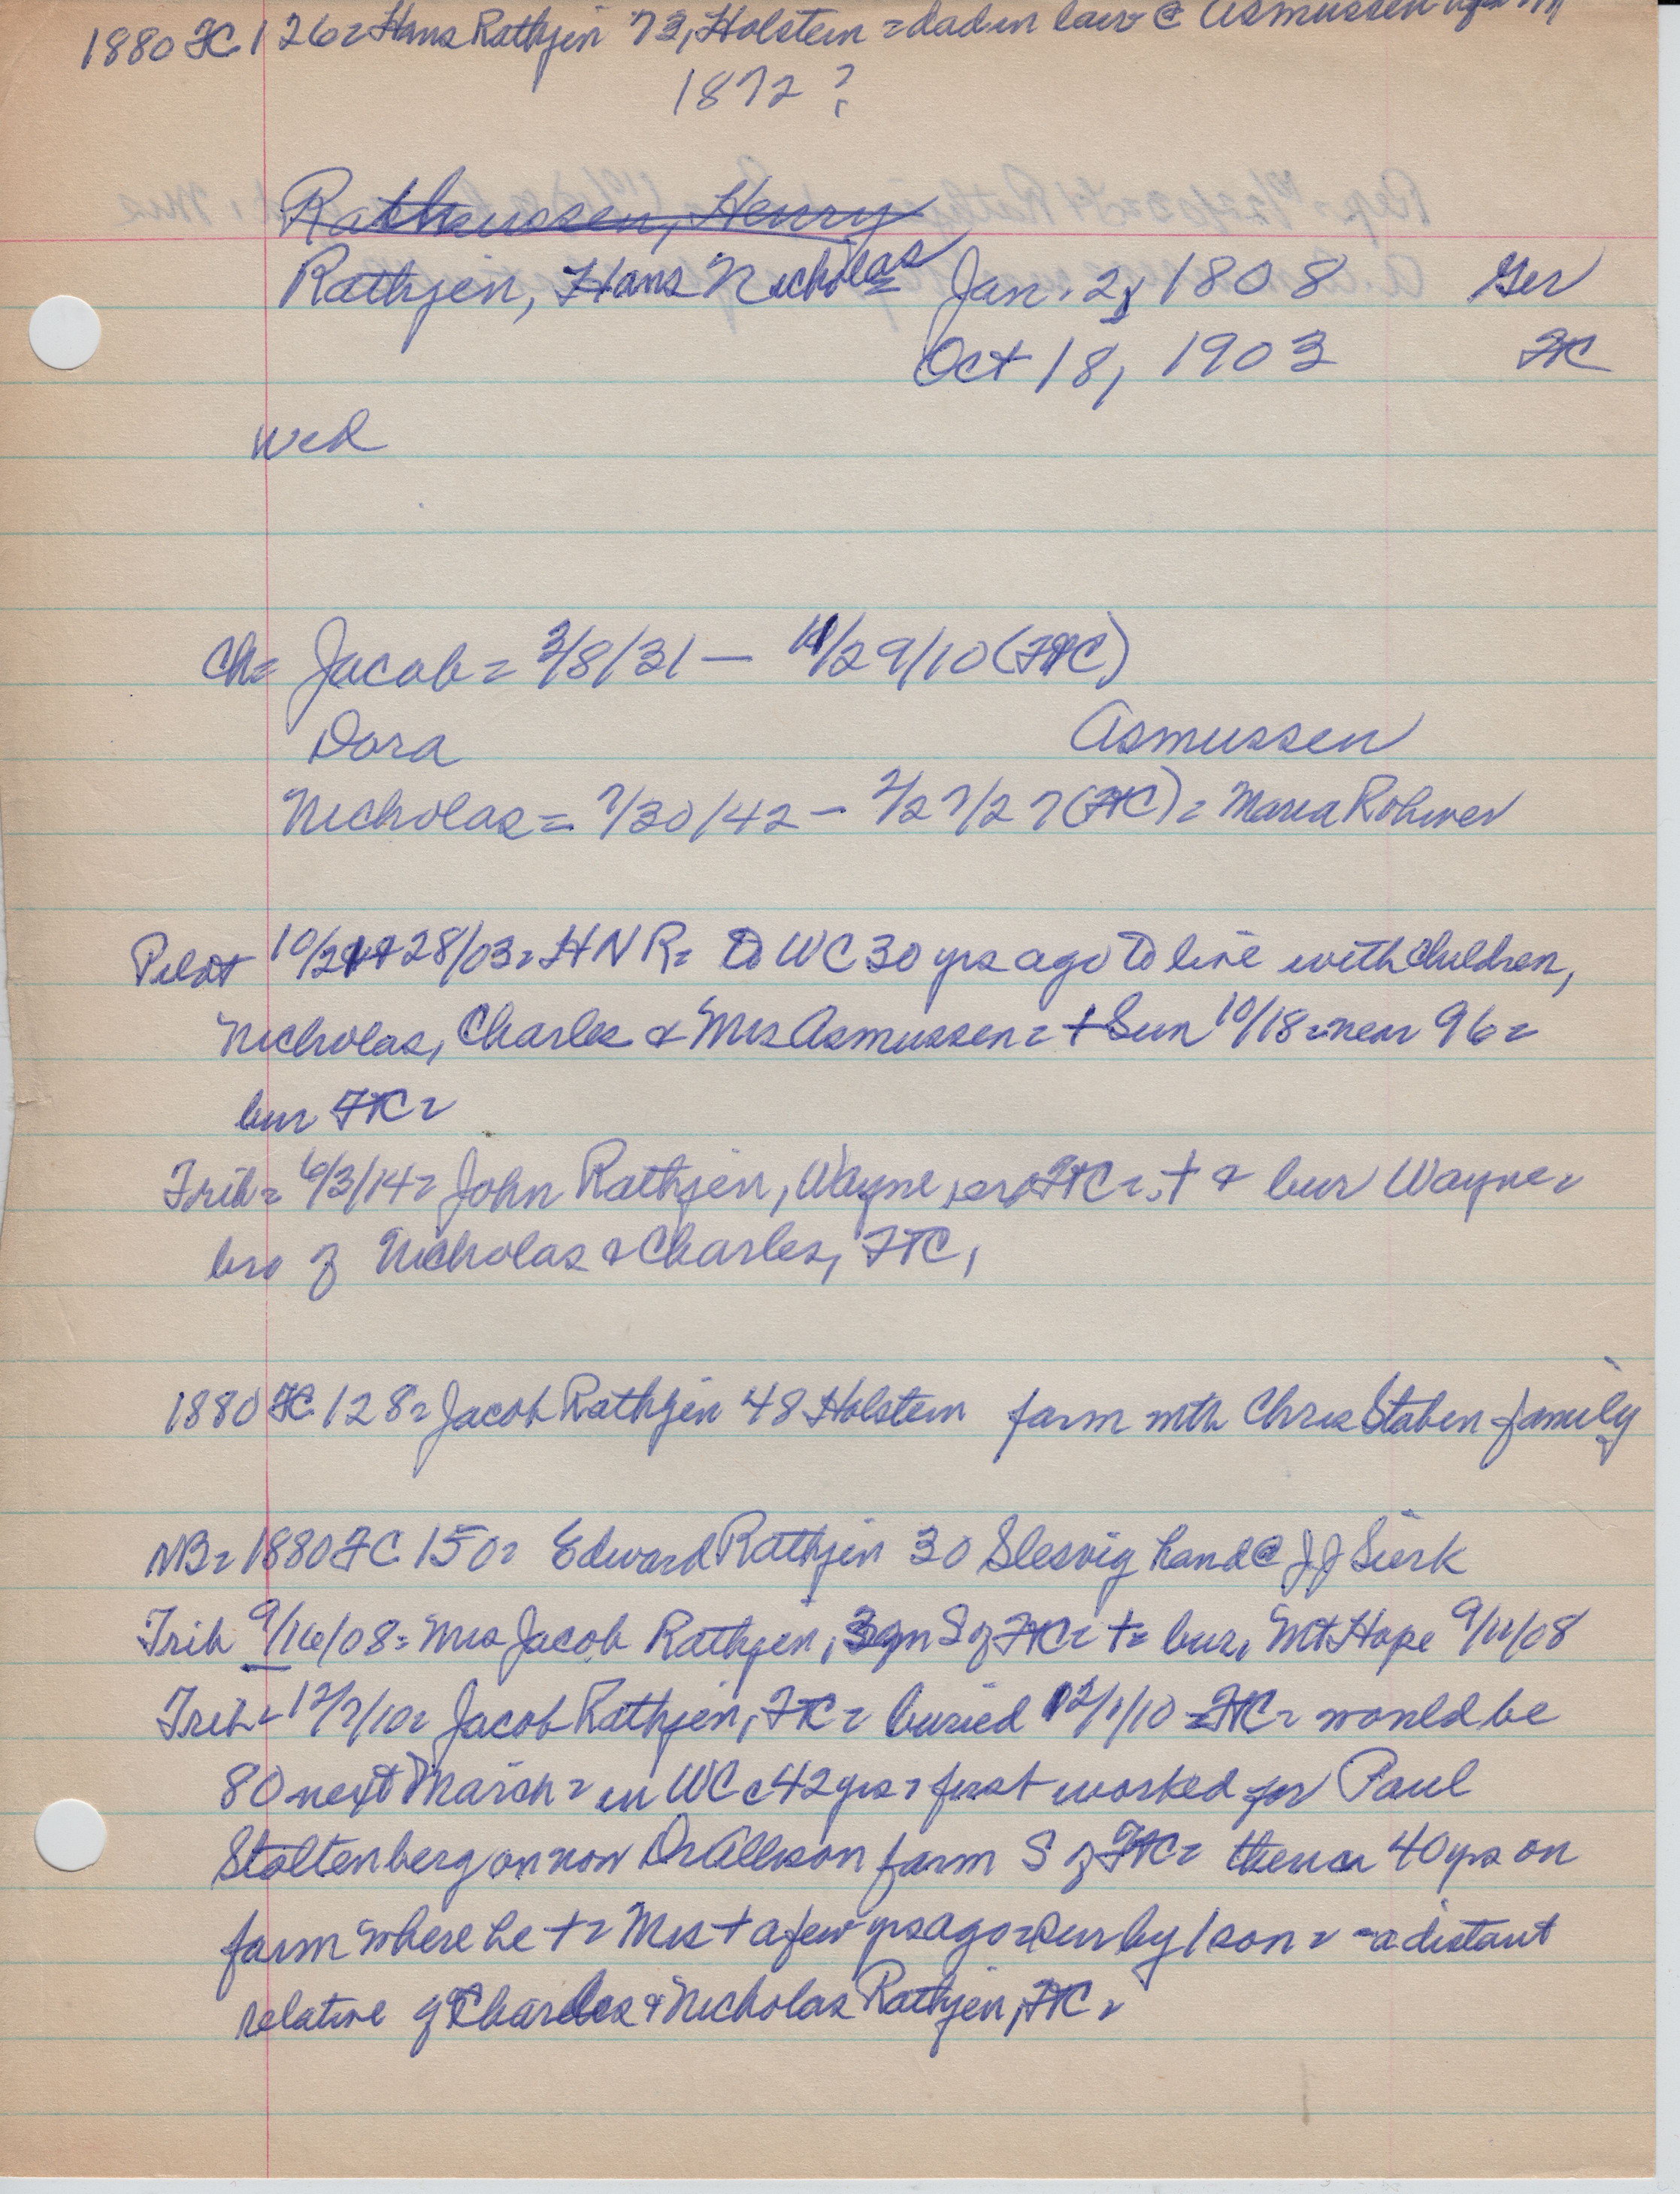 1880 FC 126= Hans Rathjen 73, Holstein = dad in law @ Asmussen
1872 ?
Rathmussen, Henry
Rathjen, Hans Nicholas Jan. 2, 1808 Ger
Oct 18, 1903 FtC
Wed
Ch= Jacob = 3/8/31 — 11/29/10 (FtC)
Dora Asmussen
Nicholas = 7/30/42 – 2/27/27 (FtC) = Maria Rohwer
Pilot 10/21 + 28/03= HNR= to WC 30 yrs ago to live with children,
Nicholas, Charles & Mrs Asmussen = + Sun 10/18 = near 96 =
bur FtC =
Trib = 6/3/14= John Rathjen, Wayne, FtC = + & bur Wayne=
bro of Nicholas & Charles, FtC,
1880 FC 128= Jacob Rathjen 48 Holstein farm with Chris Staben family
NB= 1880 FC 150= Edward Rathjen 30 Slesvig hand @ JJ Sierk
Trib 9/16/08= Mrs Jacob Rathjen, 3 m S of FtC = += bur. Mt Hope 9/11/08
Trib= 12/7/10= Jacob Rathjen, FtC = buried 12/1/10 FtC = would be
80 next March = in WC c 42 yrs = first worked for Paul
Stoltenberg on now Dr Allison farm S of FtC= then c 40 yrs on
farm where he + = Mrs + a few yrs ago = sur by 1 son = -a distant
relative of Charles & Nicholas Rathjen, FtC =